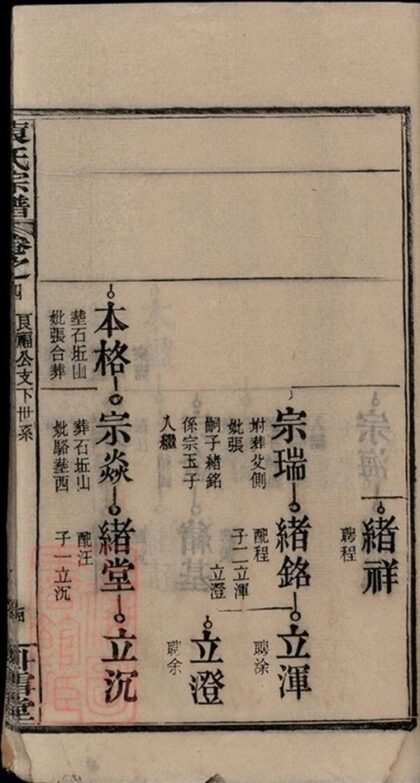 緒祥
聘程
宗瑞
附葬父側
妣張
嗣子緒銘
係宗玉子
入繼
緒銘
配程
子二立渾
立澄
立渾
聘涂
立澄
聘余
本格
塟石坵山
妣張合葬
宗焱
葬石坵山
妣駱塟西
緒堂
配汪
子一立沉
立沉
袁氏宗譜
卷之四
良福公支下世系